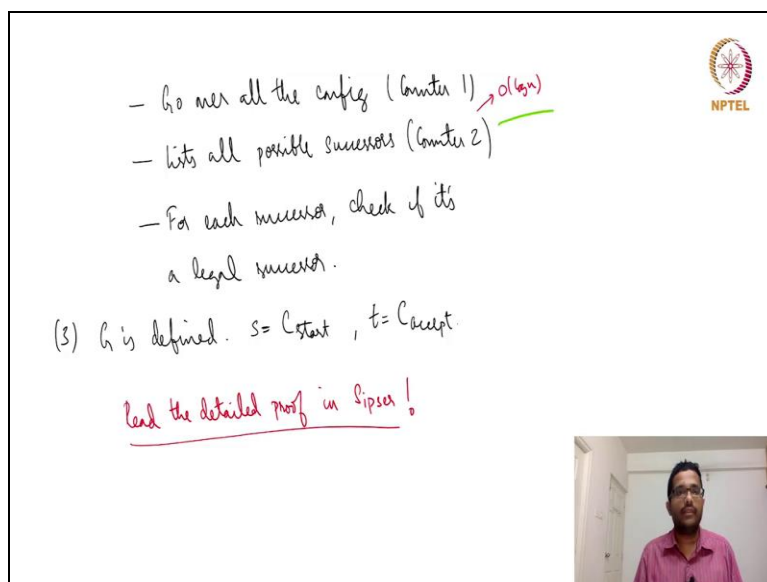 - Go over all the config (Counter 1)
→ O(log n)
- Lists all possible successors (Counter 2)
- For each successor, check if it's
a legal successor.
(3) G is defined. s = C_start, t = C_accept.
Read the detailed proof in Sipser!
NPTEL